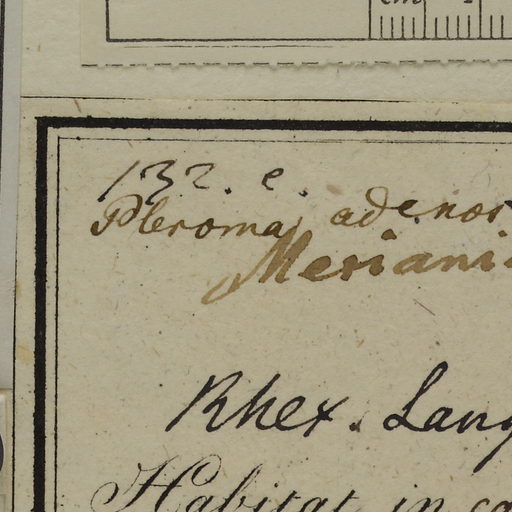 cm
132. e.
Pleroma adenos
Meriani
Rhex. Lang
Habitat in ca